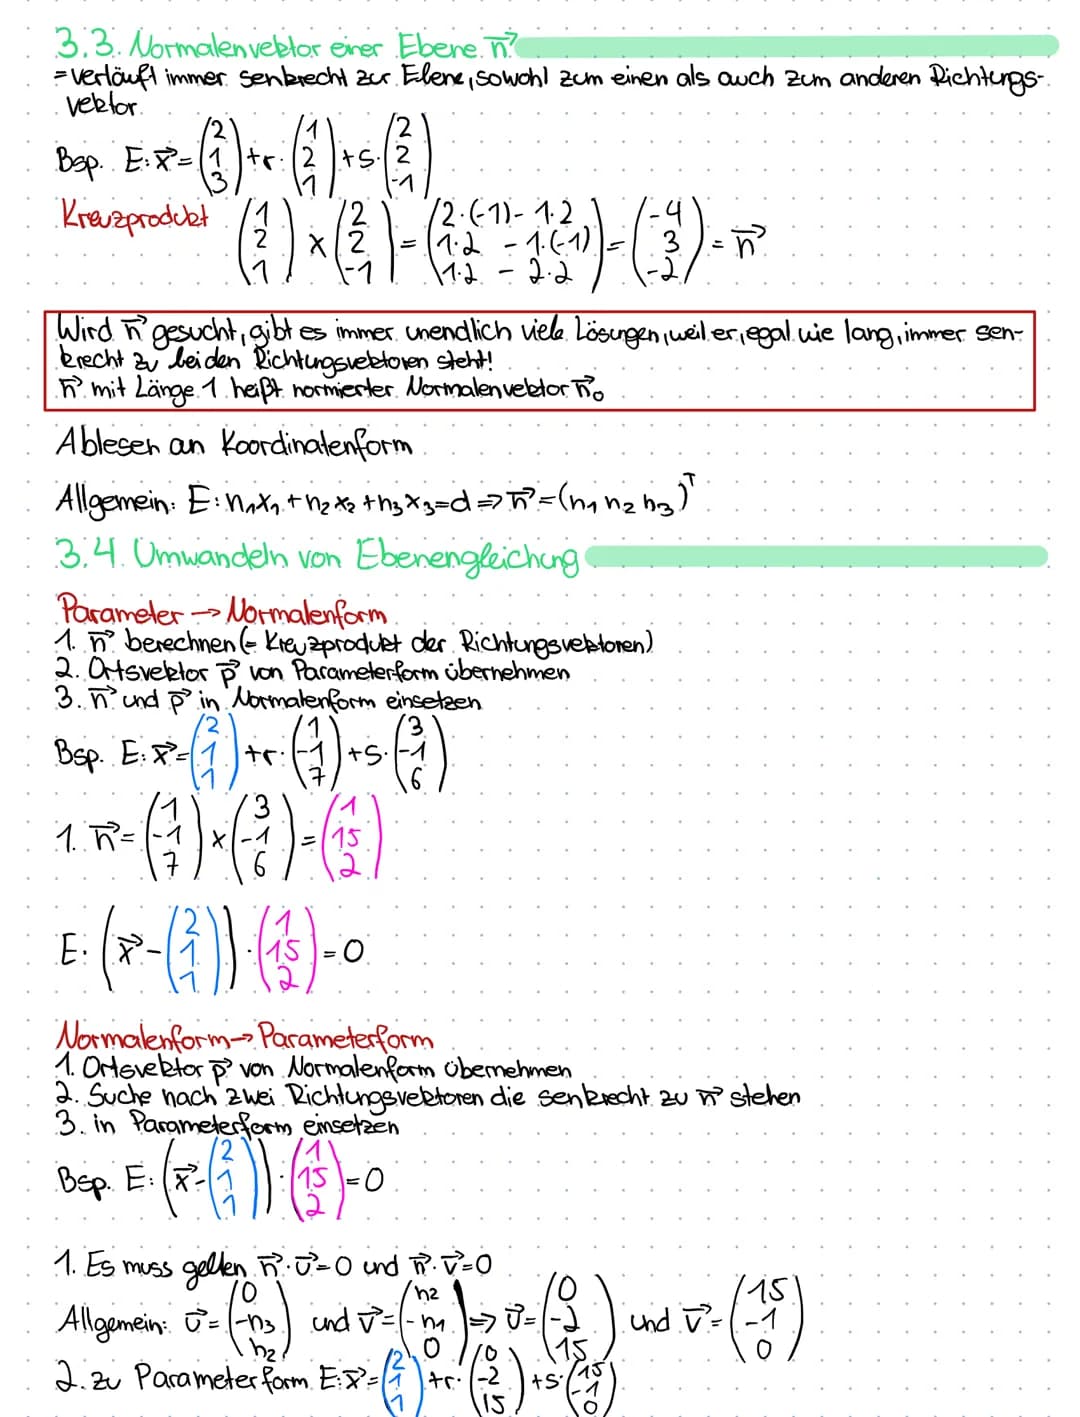 3.3. Normalenvektor einer Ebene n⃗
= verläuft immer senkrecht zur Ebene, sowohl zum einen als auch zum anderen Richtungs-
vektor
Bsp. E: x⃗ = (2 1 3) + r · (1 2 1) + s · (2 2 -1)
Kreuzprodukt (1 2 1) × (2 2 -1) = (2·(-1) - 1·2 1·2 - 1·(-1) 1·2 - 2·2) = (-4 3 -2) = n⃗
Wird n⃗ gesucht, gibt es immer unendlich viele Lösungen, weil er, egal wie lang, immer sen-
krecht zu beiden Richtungsvektoren steht!
n⃗ mit Länge 1 heißt normierter Normalenvektor n⃗₀
Ablesen an Koordinatenform
Allgemein: E: n₁x₁ + n₂x₂ + n₃x₃ = d ⇒ n⃗ = (n₁ n₂ n₃)ᵀ
3.4. Umwandeln von Ebenengleichung
Parameter → Normalenform
1. n⃗ berechnen (= Kreuzprodukt der Richtungsvektoren)
2. Ortsvektor p⃗ von Parameterform übernehmen
3. n⃗ und p⃗ in Normalenform einsetzen
Bsp. E: x⃗ = (2 1 1) + r · (1 -1 7) + s · (3 -1 6)
1. n⃗ = (1 -1 7) × (3 -1 6) = (1 15 2)
E: (x⃗ - (2 1 1)) · (1 15 2) = 0
Normalenform → Parameterform
1. Ortsvektor p⃗ von Normalenform übernehmen
2. Suche nach zwei Richtungsvektoren die senkrecht zu n⃗ stehen
3. in Parameterform einsetzen
Bsp. E: (x⃗ - (2 1 1)) · (1 15 2) = 0
1. Es muss gelten n⃗ · u⃗ = 0 und n⃗ · v⃗ = 0
Allgemein: u⃗ = (0 -n₃ n₂) und v⃗ = (n₂ -n₁ 0) ⇒ u⃗ = (0 -2 15) und v⃗ = (15 -1 0)
2. zu Parameterform E: x⃗ = (2 1 1) + r · (0 -2 15) + s · (15 -1 0)